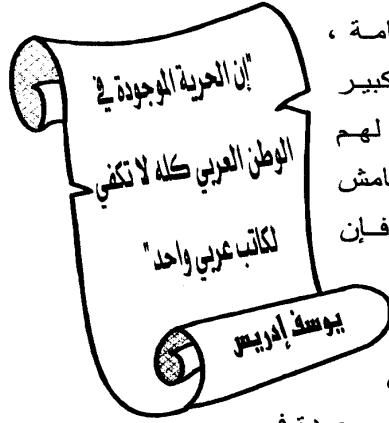 "إن الحرية الموجودة في
الوطن العربي كله لا تكفي
لكاتب عربي واحد"
يوسف إدريس
كبير
لهم
فإن